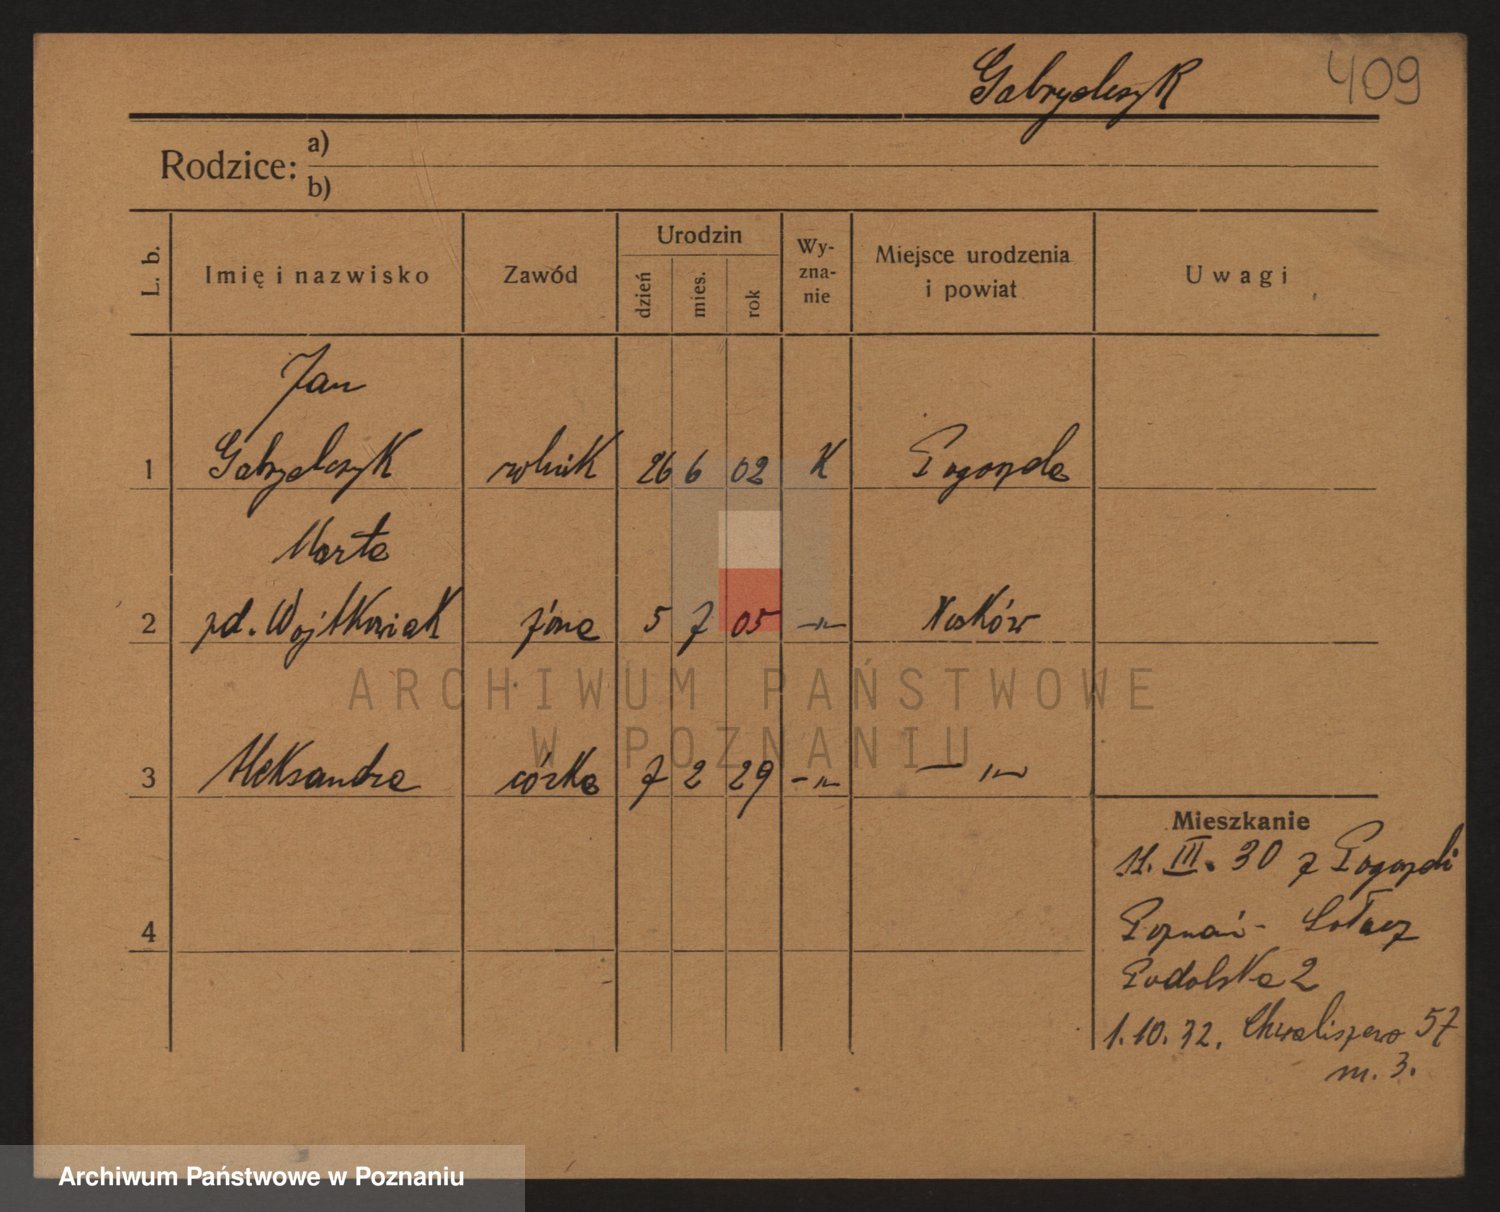 Gabryelczyk 409
Rodzice: a)
b)
L. b. Imię i nazwisko Zawód Urodzin dzień mies. rok Wy-zna-nie Miejsce urodzenia i powiat Uwagi
Jan
1 Gabryelczyk rolnik 26 6 02 K Pogorzela
Marta
2 pd. Wojtkowiak żona 5 7 05 -"- Nosków
ARCHIWUM PAŃSTWOWE
W POZNANIU
3 Aleksandra córka 7 2 29 -"- -"-
Mieszkanie
11. III. 30 z Pogorzeli
4 Poznań - Sołacz
Podolska 2
1.10.32. Chwaliszewo 57
m. 3.
Archiwum Państwowe w Poznaniu